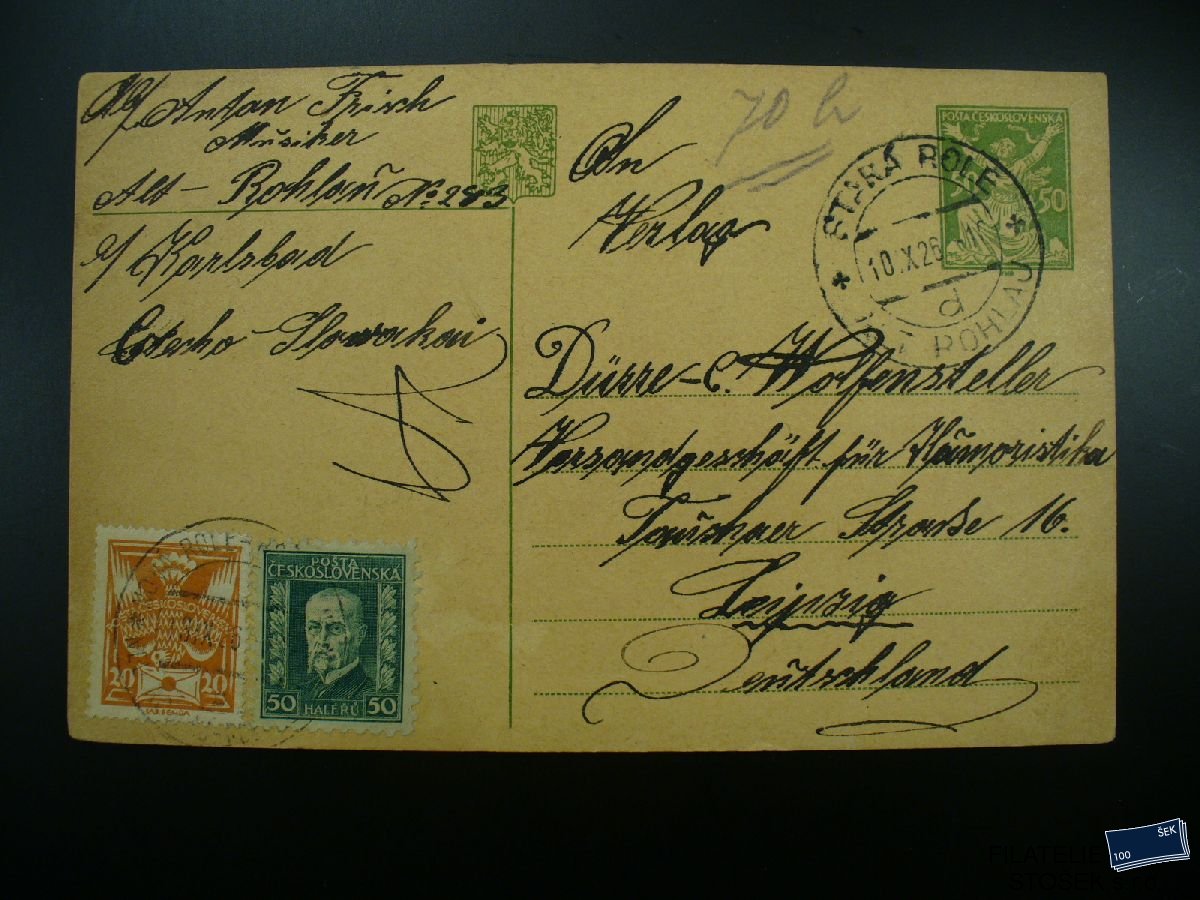 Abs Anton Frisch
Musiker
Alt - Rohlaŭ No 293
b/ Karlsbad
Czecho Slowakei
70 h
An
Verlag
Dürre - C. Wolfensteller
Versandgeschäft für Hŭmoristika
Taŭchaer Straße 16.
Leipzig
Deŭtschland
POŠTA ČESKOSLOVENSKÁ
50
STARÁ ROLE
10.X.26
d
ROHLAU
20 20
POŠTA
ČESKOSLOVENSKÁ
50 HALÉŘŮ 50
ŠEK
100
FILATELIE
STOSEK